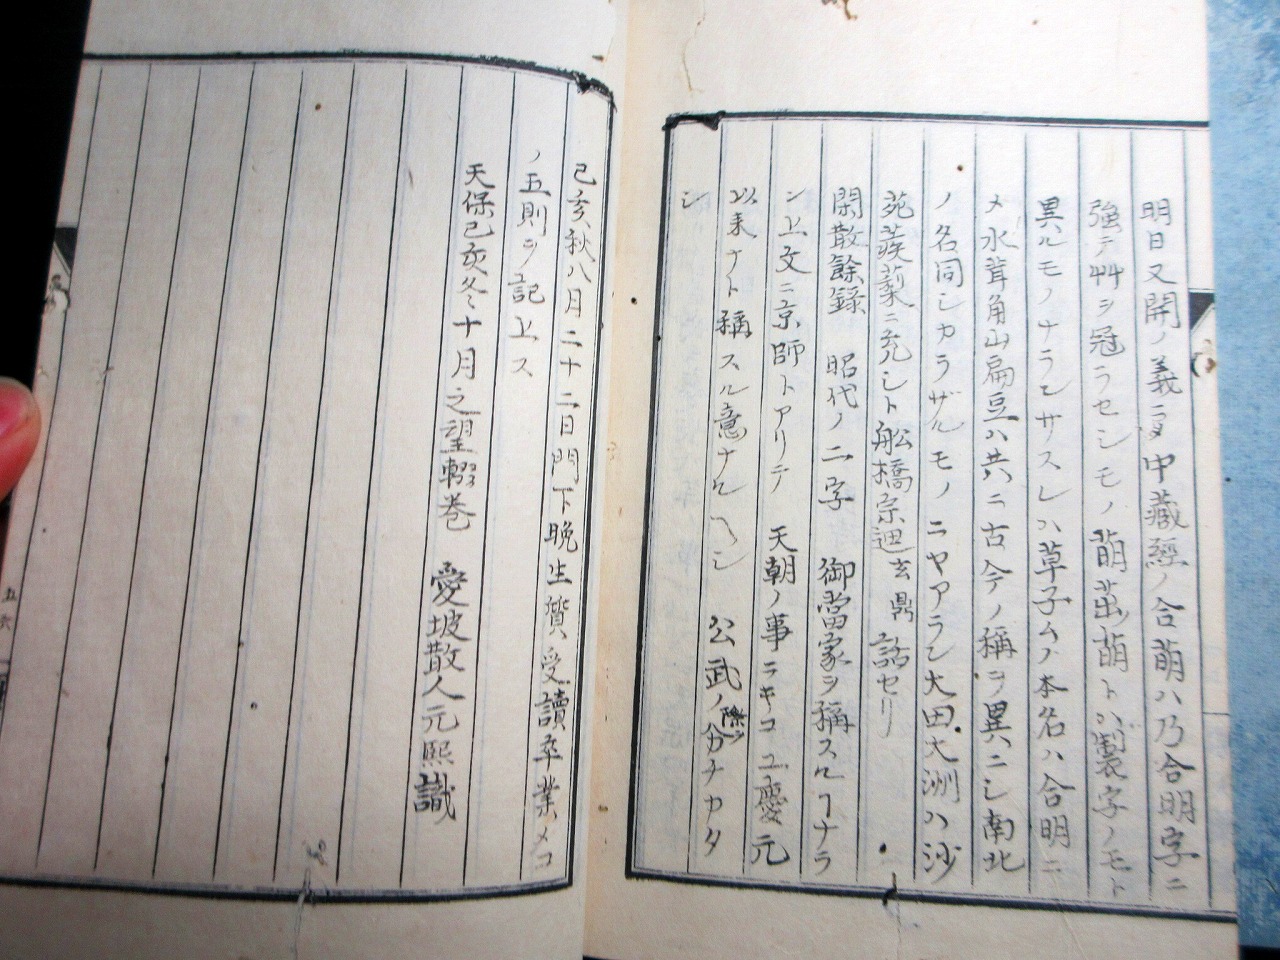 明日又開ノ義ニ中藏經ノ合萠ハ乃合明字ニ
強テ艸ヲ冠ラセシモノ萠茁萠トハ製字ノモト
異ルモノナランサスレハ草子ムノ本名ハ合明ニ
メ水茸角山扁豆ハ共ニ古今ノ稱ヲ異ニシ南北
ノ名同シカラザルモノニヤアラン大田大洲ハ沙
苑蒺蔾ニ充シト舩橋宗迪玄鼎話セリ
閑散餘録 昭代ノ二字 御當家ヲ稱スルヿナラ
ン上文ニ京師トアリテ 天朝ノ事ヲキコユ慶元
以来ナト稱スル意ナルヘシ 公武ノ際ヲ分チカタ
シ
己亥秋八月二十二日門下晩生贄受讀卒業メコ
ノ五則ヲ記上ス
天保己亥冬十月之望輟巻 愛坡散人元熙識
五六